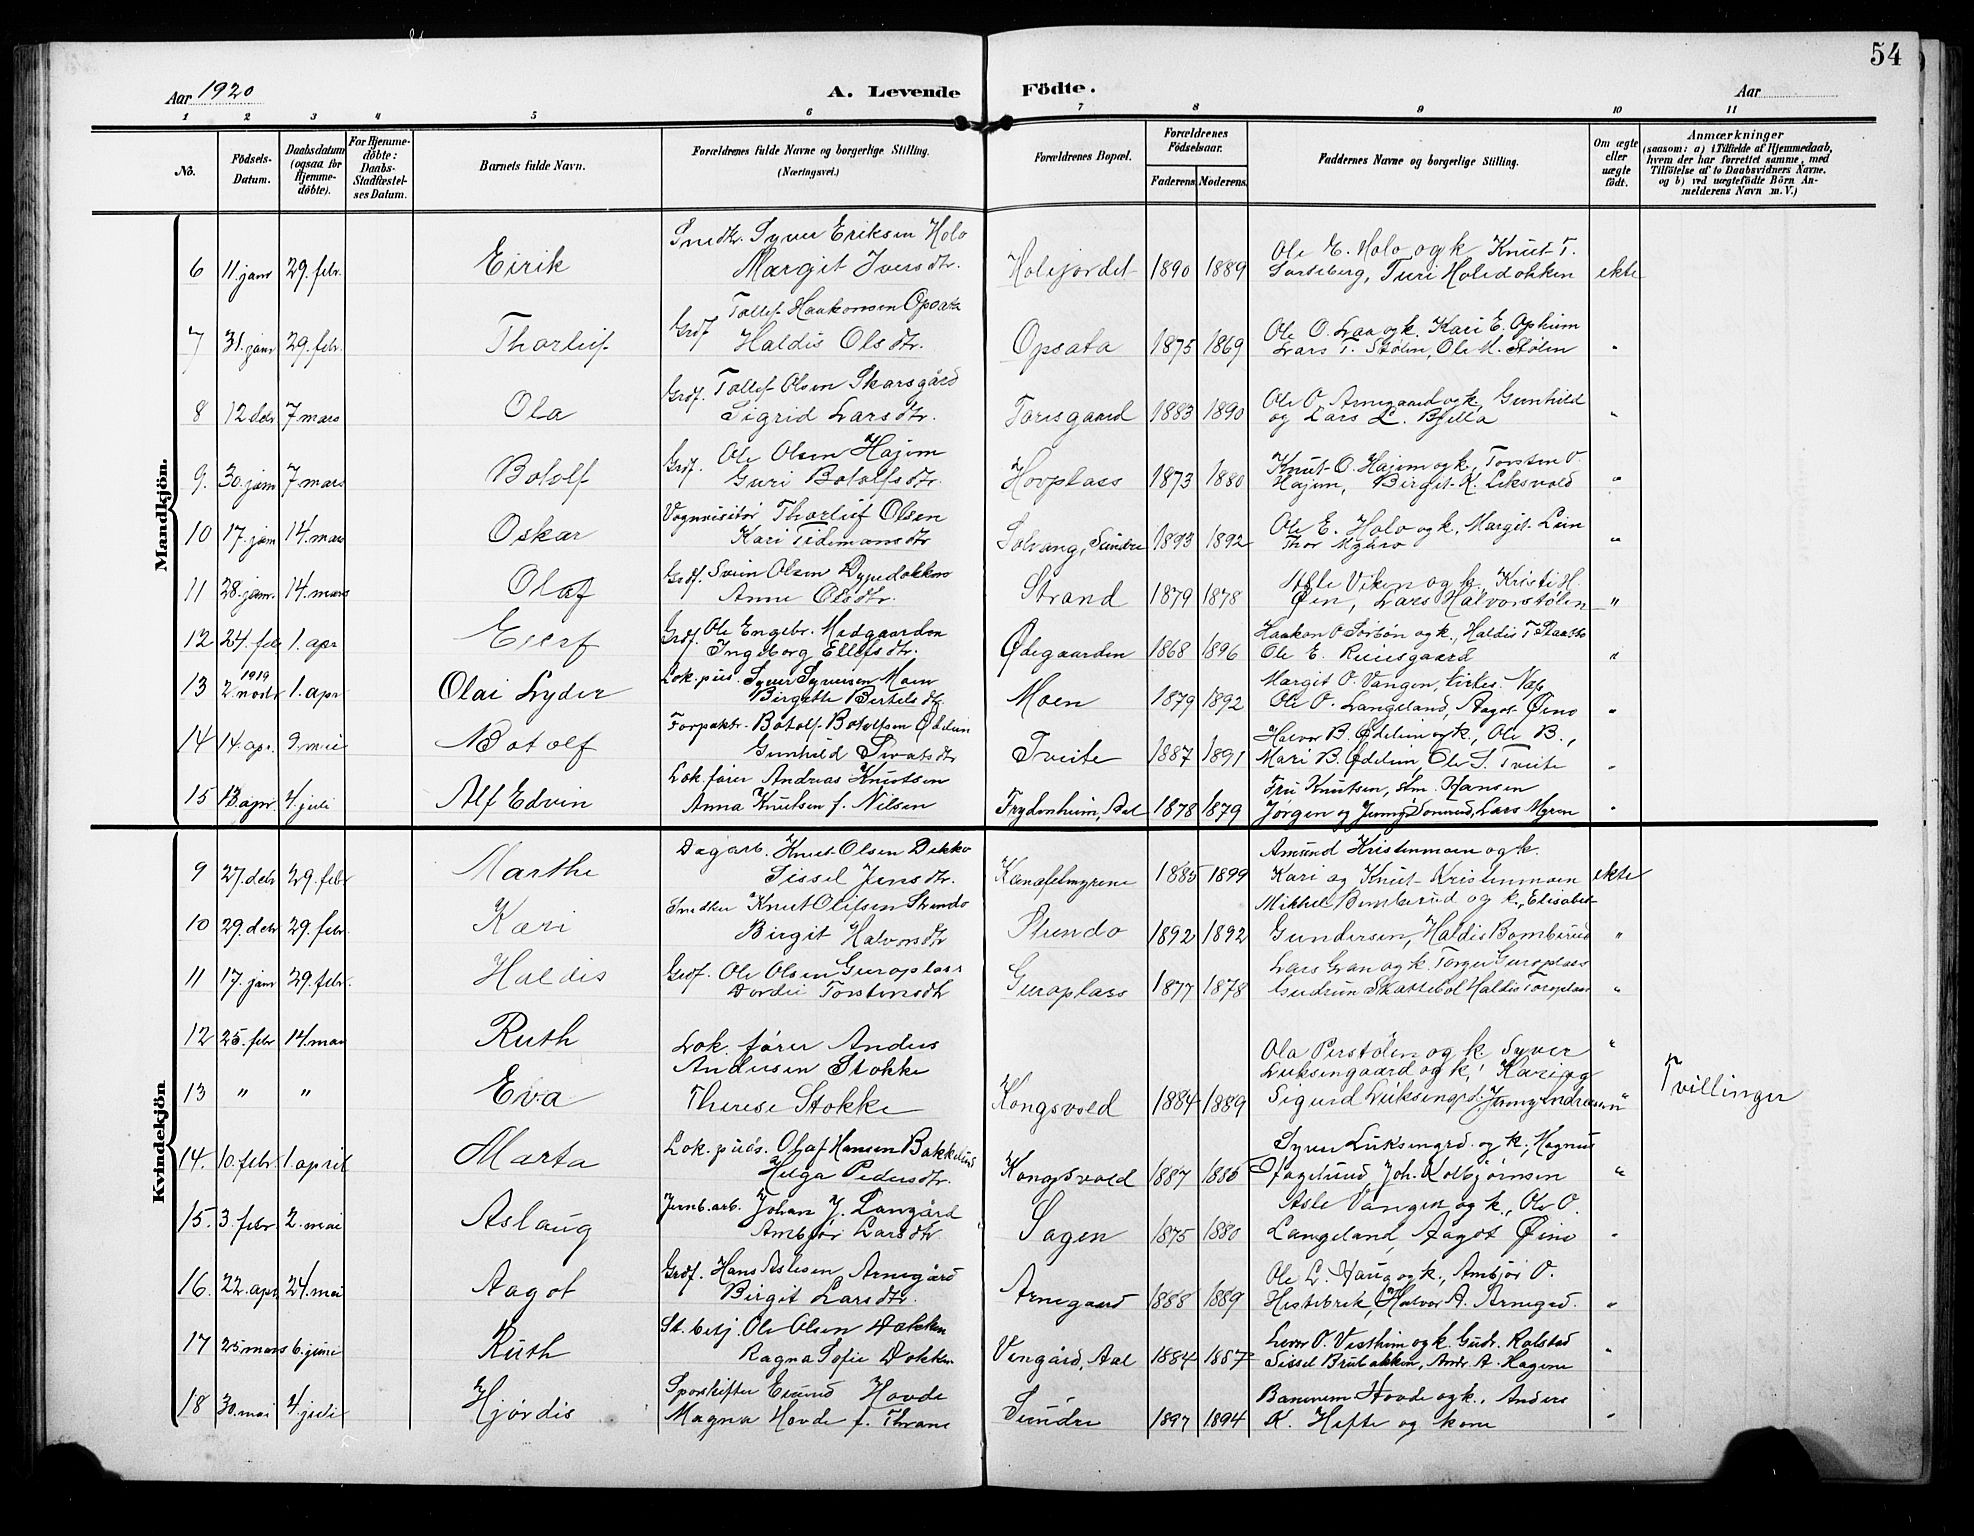 54
Aar 1920
A. Levende Födte.
Aar
1 2 3 4 5 6 7 8 9 10 11
No.
Födsels-Datum.
Daabsdatum (ogsaa for Hjemme-döbte).
For Hjemme-döbte: Daabs-Stadfæstel-ses Datum.
Barnets fulde Navn.
Forældrenes fulde Navne og borgerlige Stilling. (Næringsvei.)
Forældrenes Bopæl.
Forældrenes Födselsaar.
Faderens. Moderens.
Faddernes Navne og borgerlige Stilling.
Om ægte eller uægte födt.
Anmærkninger
(saasom: a) i Tilfælde af Hjemmedaab, hvem der har forrettet samme, med Tilföielse af to Daabsvidners Navne, og b) ved uægtefödte Börn An-melderens Navn m. V.)
Mandkjön.
6 11. janr 29. febr. Eirik Smedk. Syver Eriksen Holo
Margit Iversdtr. Holijordet 1890 1889 Ole E. Holo og k Knut T.
Turi Holedokken ekte
7 31. janr 29. febr. Thorleif Grdf. Tollef Haakonsen Opsata
Haldis Olsdtr. Opsata 1875 1869 Ole O. Laa og k. Kari E. Opheim
Lars T. Stølen, Ole M. Stølen "
8 12 debr 7 mars Ola Grdf. Tollef Olsen Skarsgård
Sigrid Larsdtr. Torisgaard 1883 1890 Ole O. Arnegaard og k. Gunhild
og Lars L. Bjella "
9. 30. janr 7 mars Botolf Grdf. Ole Olsen Hajem
Guri Botolfsdtr. Hovplass 1873 1880 Knut O. Hajem og k, Torsten O.
Hajem, Birgit K. Liksvold "
10 17. janr 14. mars Oskar Vognvisitør Thorleif Olsen
Kari Tidemansdtr Solvang, Sundre 1893 1892 Ole E. Holo og k, Margit Lein
Thor Myhro "
11 28. janr. 14. mars Olaf Grdf. Svein Olsen Dypedokken
Anne Olsdtr. Strand 1879 1878 Viken og k, Kristi H.
Øen, Lars Halvorstølen "
12 24. febr 1. apr Grdf. Ole Engebr. Medgaarden
Ingeborg Ellefsdtr. Ødegaarden 1868 1896 Haakon O Sørbøn og k., Haldis T.
Ole E. Reiesgaard "
13 1919 2. novbr 1. apr Olai Lyder Lok. pus. Syver Syversen Moen
Birgitte Bertelsdtr. Moen 1879 1892 Margit O. Vangen,
Ole O. Langeland, Aagot Øino "
14 14. apr. 9. mai Botolf Forpaktr. Botolf Botolfsen Ødelien
Gunhild Sivatsdtr Tveite 1887 1891 Halvor B. Ødelien og k, Ole B.,
Mari B. Ødelien, Ole S. Tveite "
15 13. apr. 4. juli Alf Edvin Lok. fører Andreas Knutsen
Anna Knutsen f. Nilsen Frydenheim, Aal 1878 1879 Fru Knutsen, stm. Hansen
Jørgen og Jenny Sonerud, Lars Myren "
Kvindekjön
9 27. debr 29. febr Marthe Dagarb. Knut Olsen Dekko
Sissel Jensdtr. 1885 1899 Amund Kristenmoen og k.
Kari og Knut Kristenmoen ekte
10 29. debr 29. febr. Kari Smedker Knut Olifsen Stendo
Birgit Halvorsdtr Stendo 1892 1892 Mikkel Bomberud og k, Elisabet
Gundersen, Haldis Bomberud "
11 17. janr 29. febr. Haldis Grdf. Ole Olsen Guroplass
Dordei Torstensdtr Guroplass 1877 1878 Lars Gran og k, Torger Guroplass
Gudrun Skattebol Haldis Toroplass "
12 25. febr 14. mars Ruth Lok. fører Anders
Andersen Stokke Ola Perstølen og k Syver "
Liksengaard og k, Kari og
13 " " Eva Therese Stokke Kongsvold 1884 1889 Sigurd Liksengd. Jenny Andreasen " Tvillinger
14. 10. febr 1. april Marta Lok. puds. Olaf Hansen Bakkelund
Helga Pedersdtr. Kongsvold 1887 1885 Syver Liksengrd. og k, Magnus
Fagelund, Joh. Kolbjørnsen "
15. 3. febr 2. mai Aslaug Jernb.arb. Johan J. Langård
Ambjør Larsdtr. Sagen 1875 1880 Asle Vangen og k., Ole O.
Langeland, Aagot Øino "
16. 22. apr. 24. mai Aagot Grdf. Hans Aslesen Arnegård
Birgit Larsdtr. Arnegaard 1888 1889 Ole L. Haug og k., Ambjør O.
Hestebrek, Halvor A. Arnegrd. "
17 25 mars 6. juni Ruth St. betj. Ole Olsen Dokken
Ragna Sofie Dokken Vengård, Aal 1884 1887 Lever O. Vestheim og k. Gudr. Rolstad
Sissel Brubakken, Andr. A. Hagene "
18 30. mai 4. juli Hjørdis Sporskifter Eivind Hovde
Magna Hovde f. Thrane Sundre 1897 1894 Banemem Hovde og k., Anders
K. Hefte og kone "